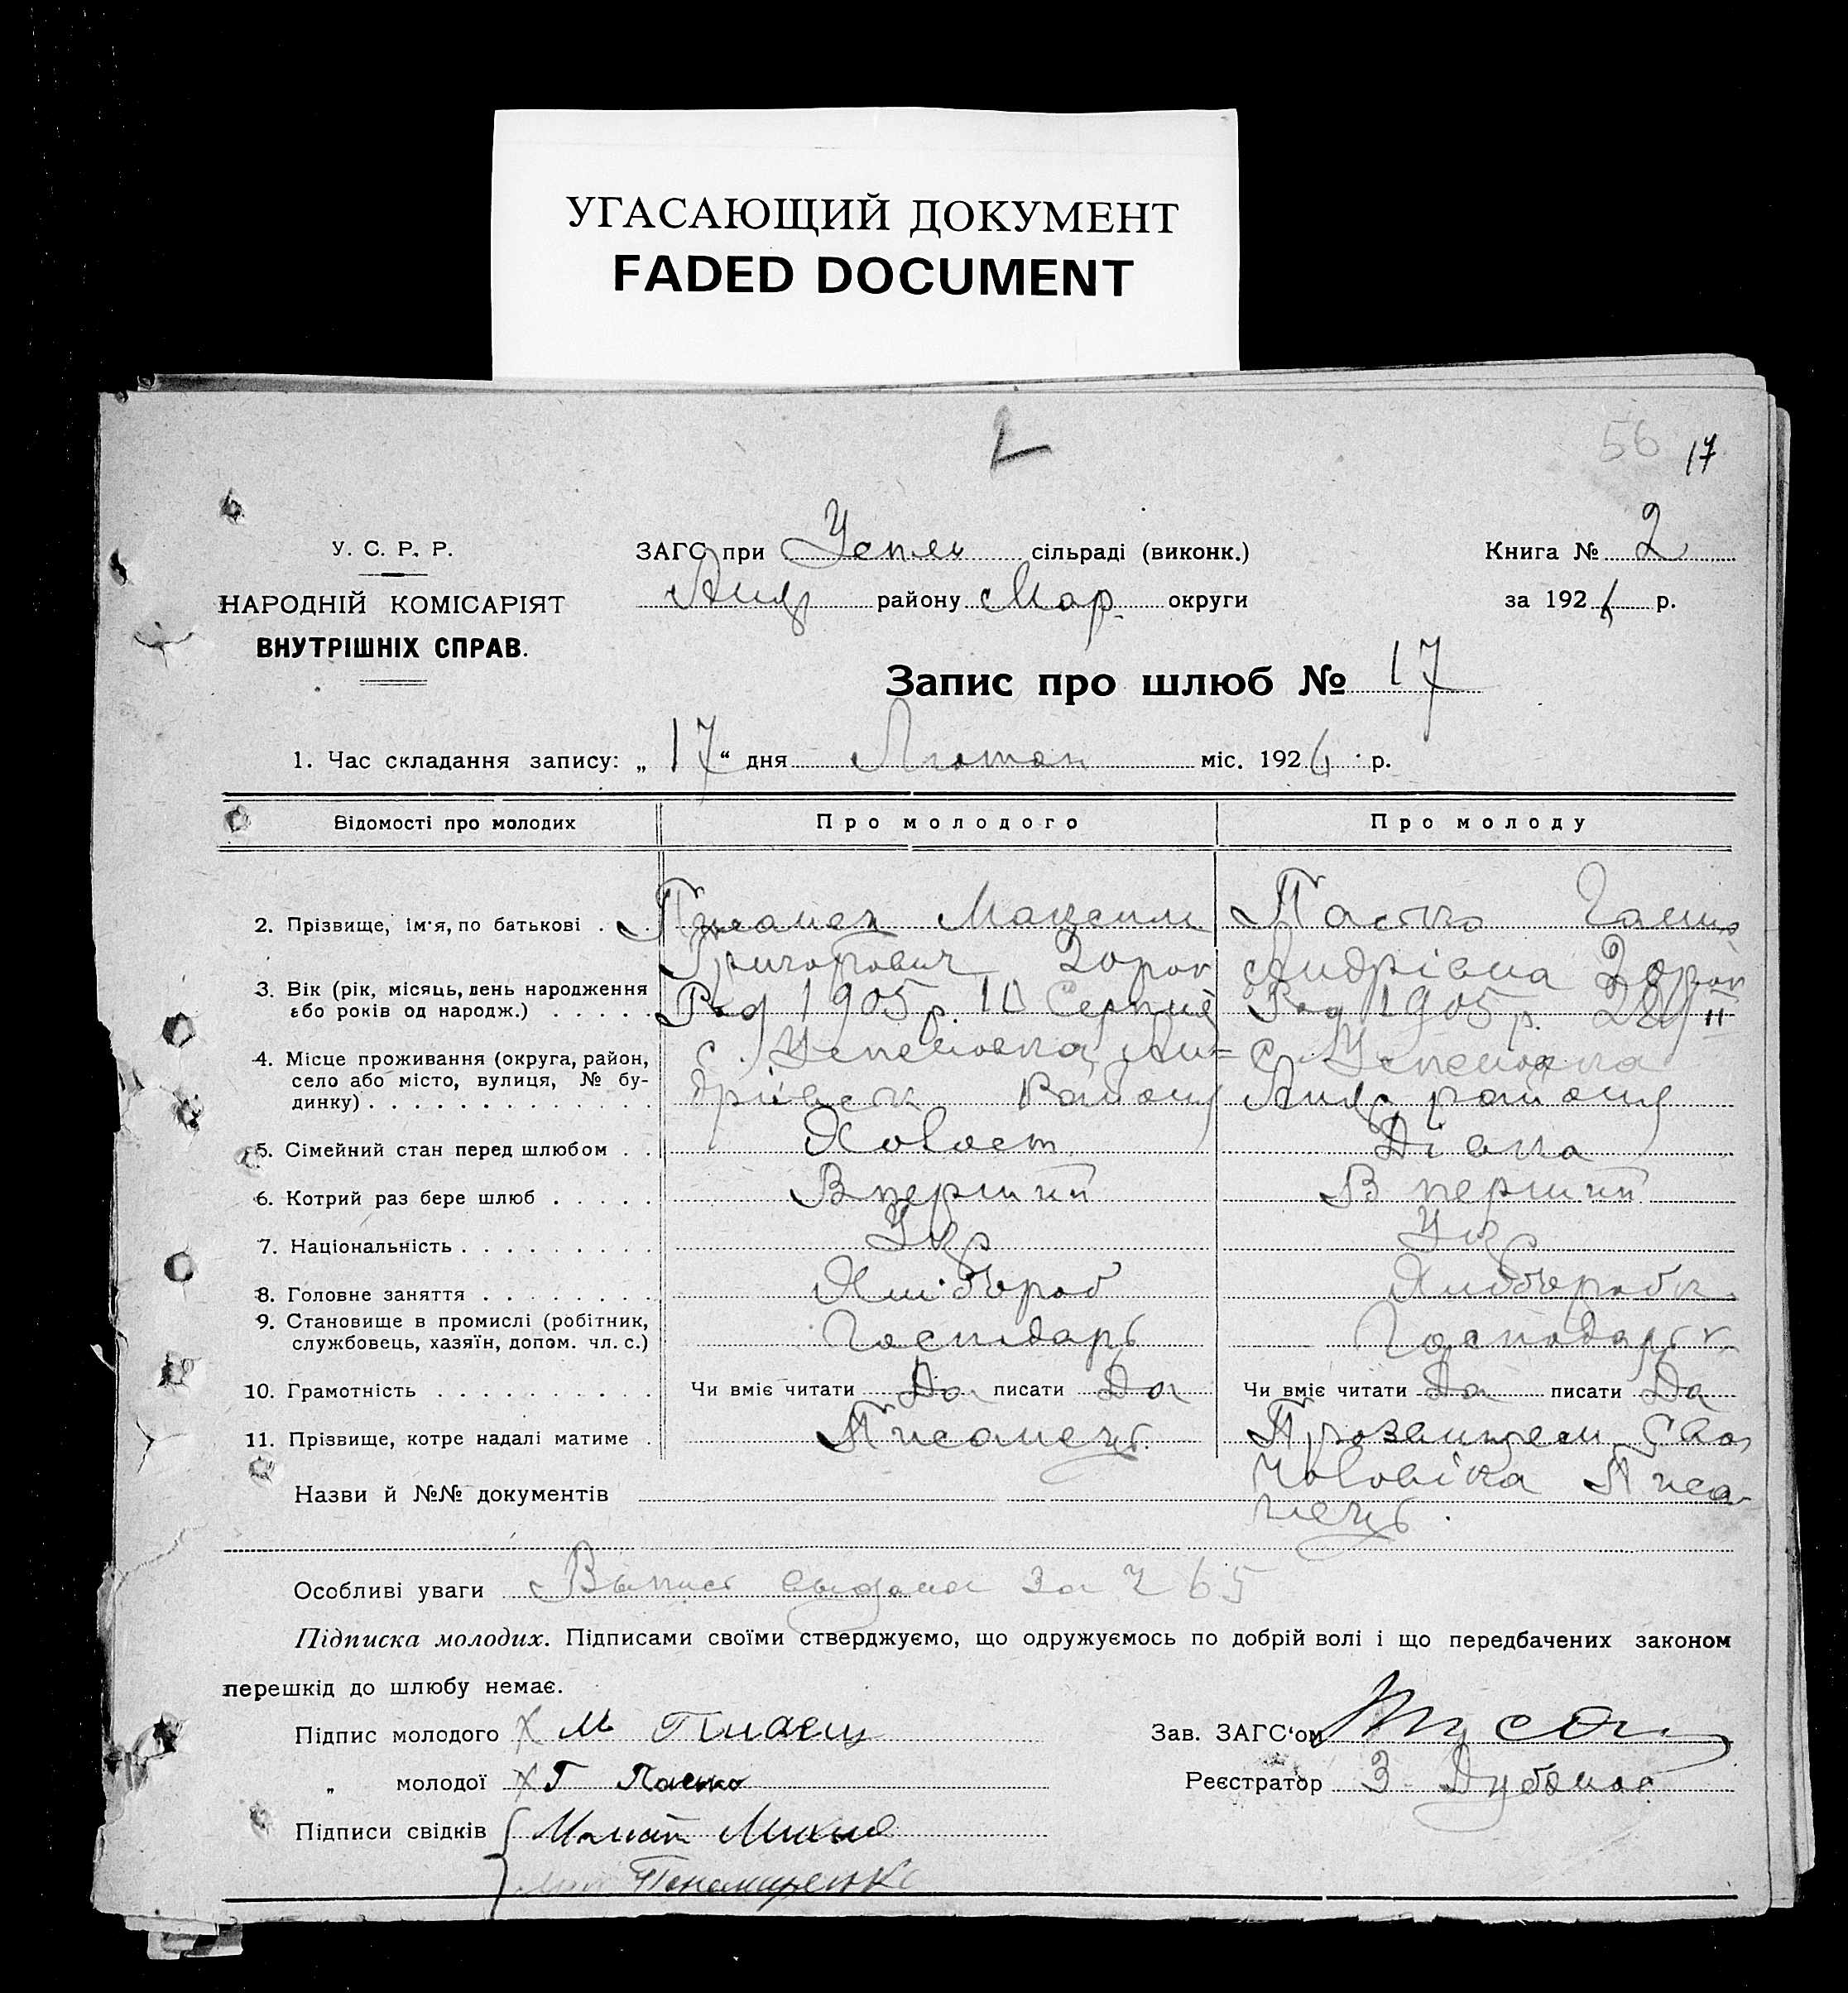 УГАСАЮЩИЙ ДОКУМЕНТ
FADED DOCUMENT
56 17
У. С. Р. Р.
НАРОДНІЙ КОМІСАРІЯТ
ВНУТРІШНІХ СПРАВ.
ЗАГС при Успен сільраді (виконк.)
Андр району Мар. округи
Книга № 2
за 1926 р.
Запис про шлюб № 17
1. Час складання запису: „ 17 “ дня Лютого міс. 1926 р.
Відомості про молодих Про молодого Про молоду
2. Прізвище, ім'я, по батькові . Писанец Максим Пасько Ганна
Григорович Андріівна
3. Вік (рік, місяць, день народження
або років од народж.) . . . . . Род 1905 р. 10 Серпня Род 1905 р. 28/II
4. Місце проживання (округа, район,
село або місто, вулиця, № бу-
динку) . . . . . . . . . . . . .
с. Успеновка Ан=
дріівськ Району
с Успеновка
Андр району
5. Сімейний стан перед шлюбом . . Холост Дівка
6. Котрий раз бере шлюб . . . . . В перший В перший
7. Національність . . . . . . . . . Укр Укр
8. Головне заняття . . . . . . . . Хлібороб Хліборобка
9. Становище в промислі (робітник,
службовець, хазяїн, допом. чл. с.) Господарь Господарьк
10. Грамотність . . . . . . . . . . . Чи вміє читати Да писати Да Чи вміє читати Да писати Да
11. Прізвище, котре надалі матиме . Писанець. Прозвищем Сво
чоловіка Писа-
нець.
Назви й №№ документів
Особливі уваги Выпись выдана За Ч 65
Підписка молодих. Підписами своїми стверджуємо, що одружуємось по добрій волі і що передбачених законом
перешкід до шлюбу немає.
Підпис молодого х М
„ молодої х Г Пасько
Підписи свідків
Пономаренко
Зав. ЗАГС'ом
Реєстратор З